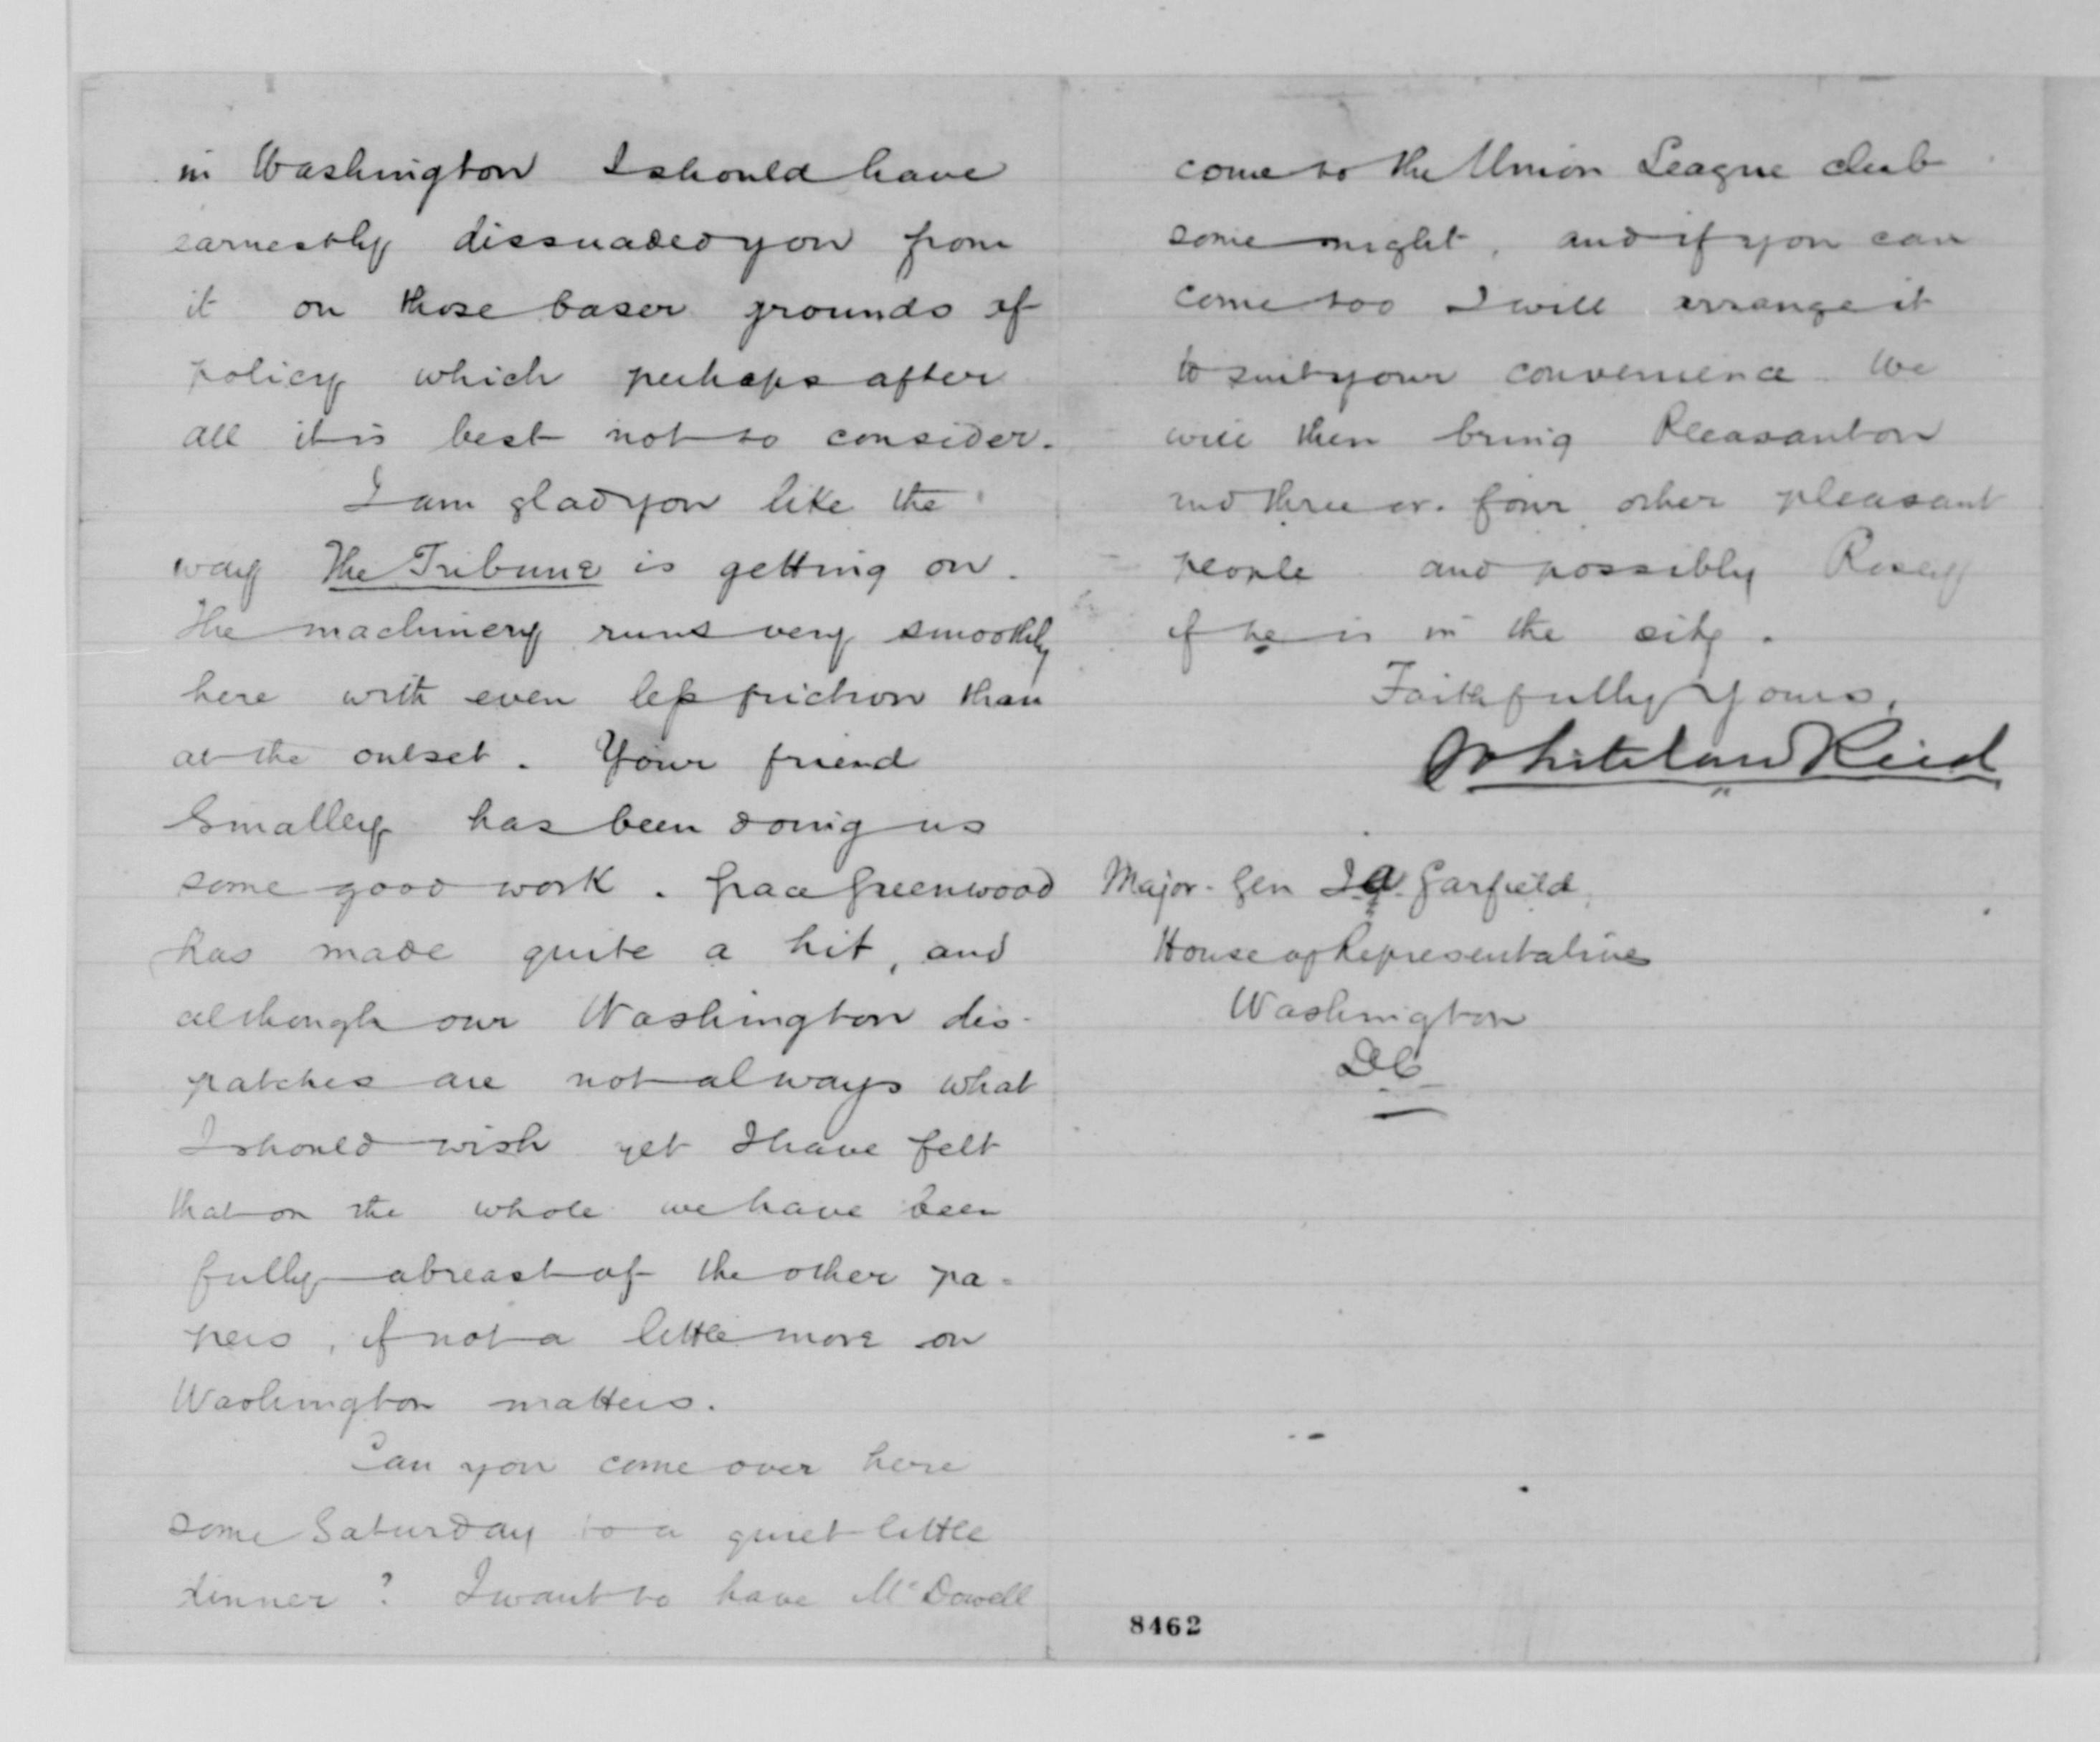 in Washington I should have
earnestly dissuaded you from
it on those baser grounds of
policy which perhaps after
all it is best not to consider.
I am glad you like the
way The Tribune is getting on.
The machinery runs very smoothly
here with even less friction than
at the outset. Your friend
Smalley has been doing us
some good work. Grace Greenwood
has made quite a hit, and
although our Washington dis-
patches are not always what
I should wish yet I have felt
that on the whole we have been
fully abreast of the other pa-
pers, if not a little more on
Washington matters.
Can you come over here
some Saturday to a quiet little
dinner? I want to have McDowell
come to the Union League club
some night, and if you can
come too I will arrange it
to suit your convenience. We
will then bring Pleasanton
and three or four other pleasant
people and possibly Rosey
if he is in the city.
Faithfully Yours,
Whitelaw Reid
Major-Gen J A Garfield,
House of Representatives
Washington
D C
8462